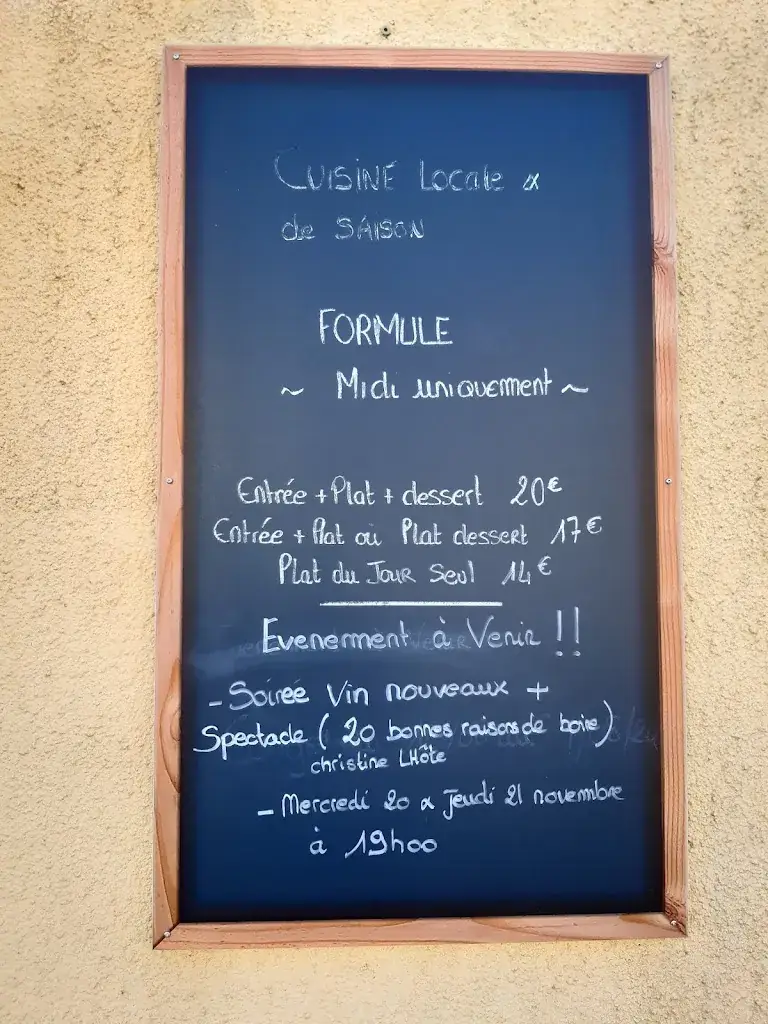 CUISINE Locale &
de SAISON
FORMULE
~ Midi uniquement ~
Entrée + Plat + dessert 20€
Entrée + Plat ou Plat dessert 17€
Plat du Jour Seul 14€
Evenement à Venir !!
- Soirée Vin nouveaux +
Spectacle ( 20 bonnes raisons de boire)
christine LHôte
- Mercredi 20 & Jeudi 21 novembre
à 19h00